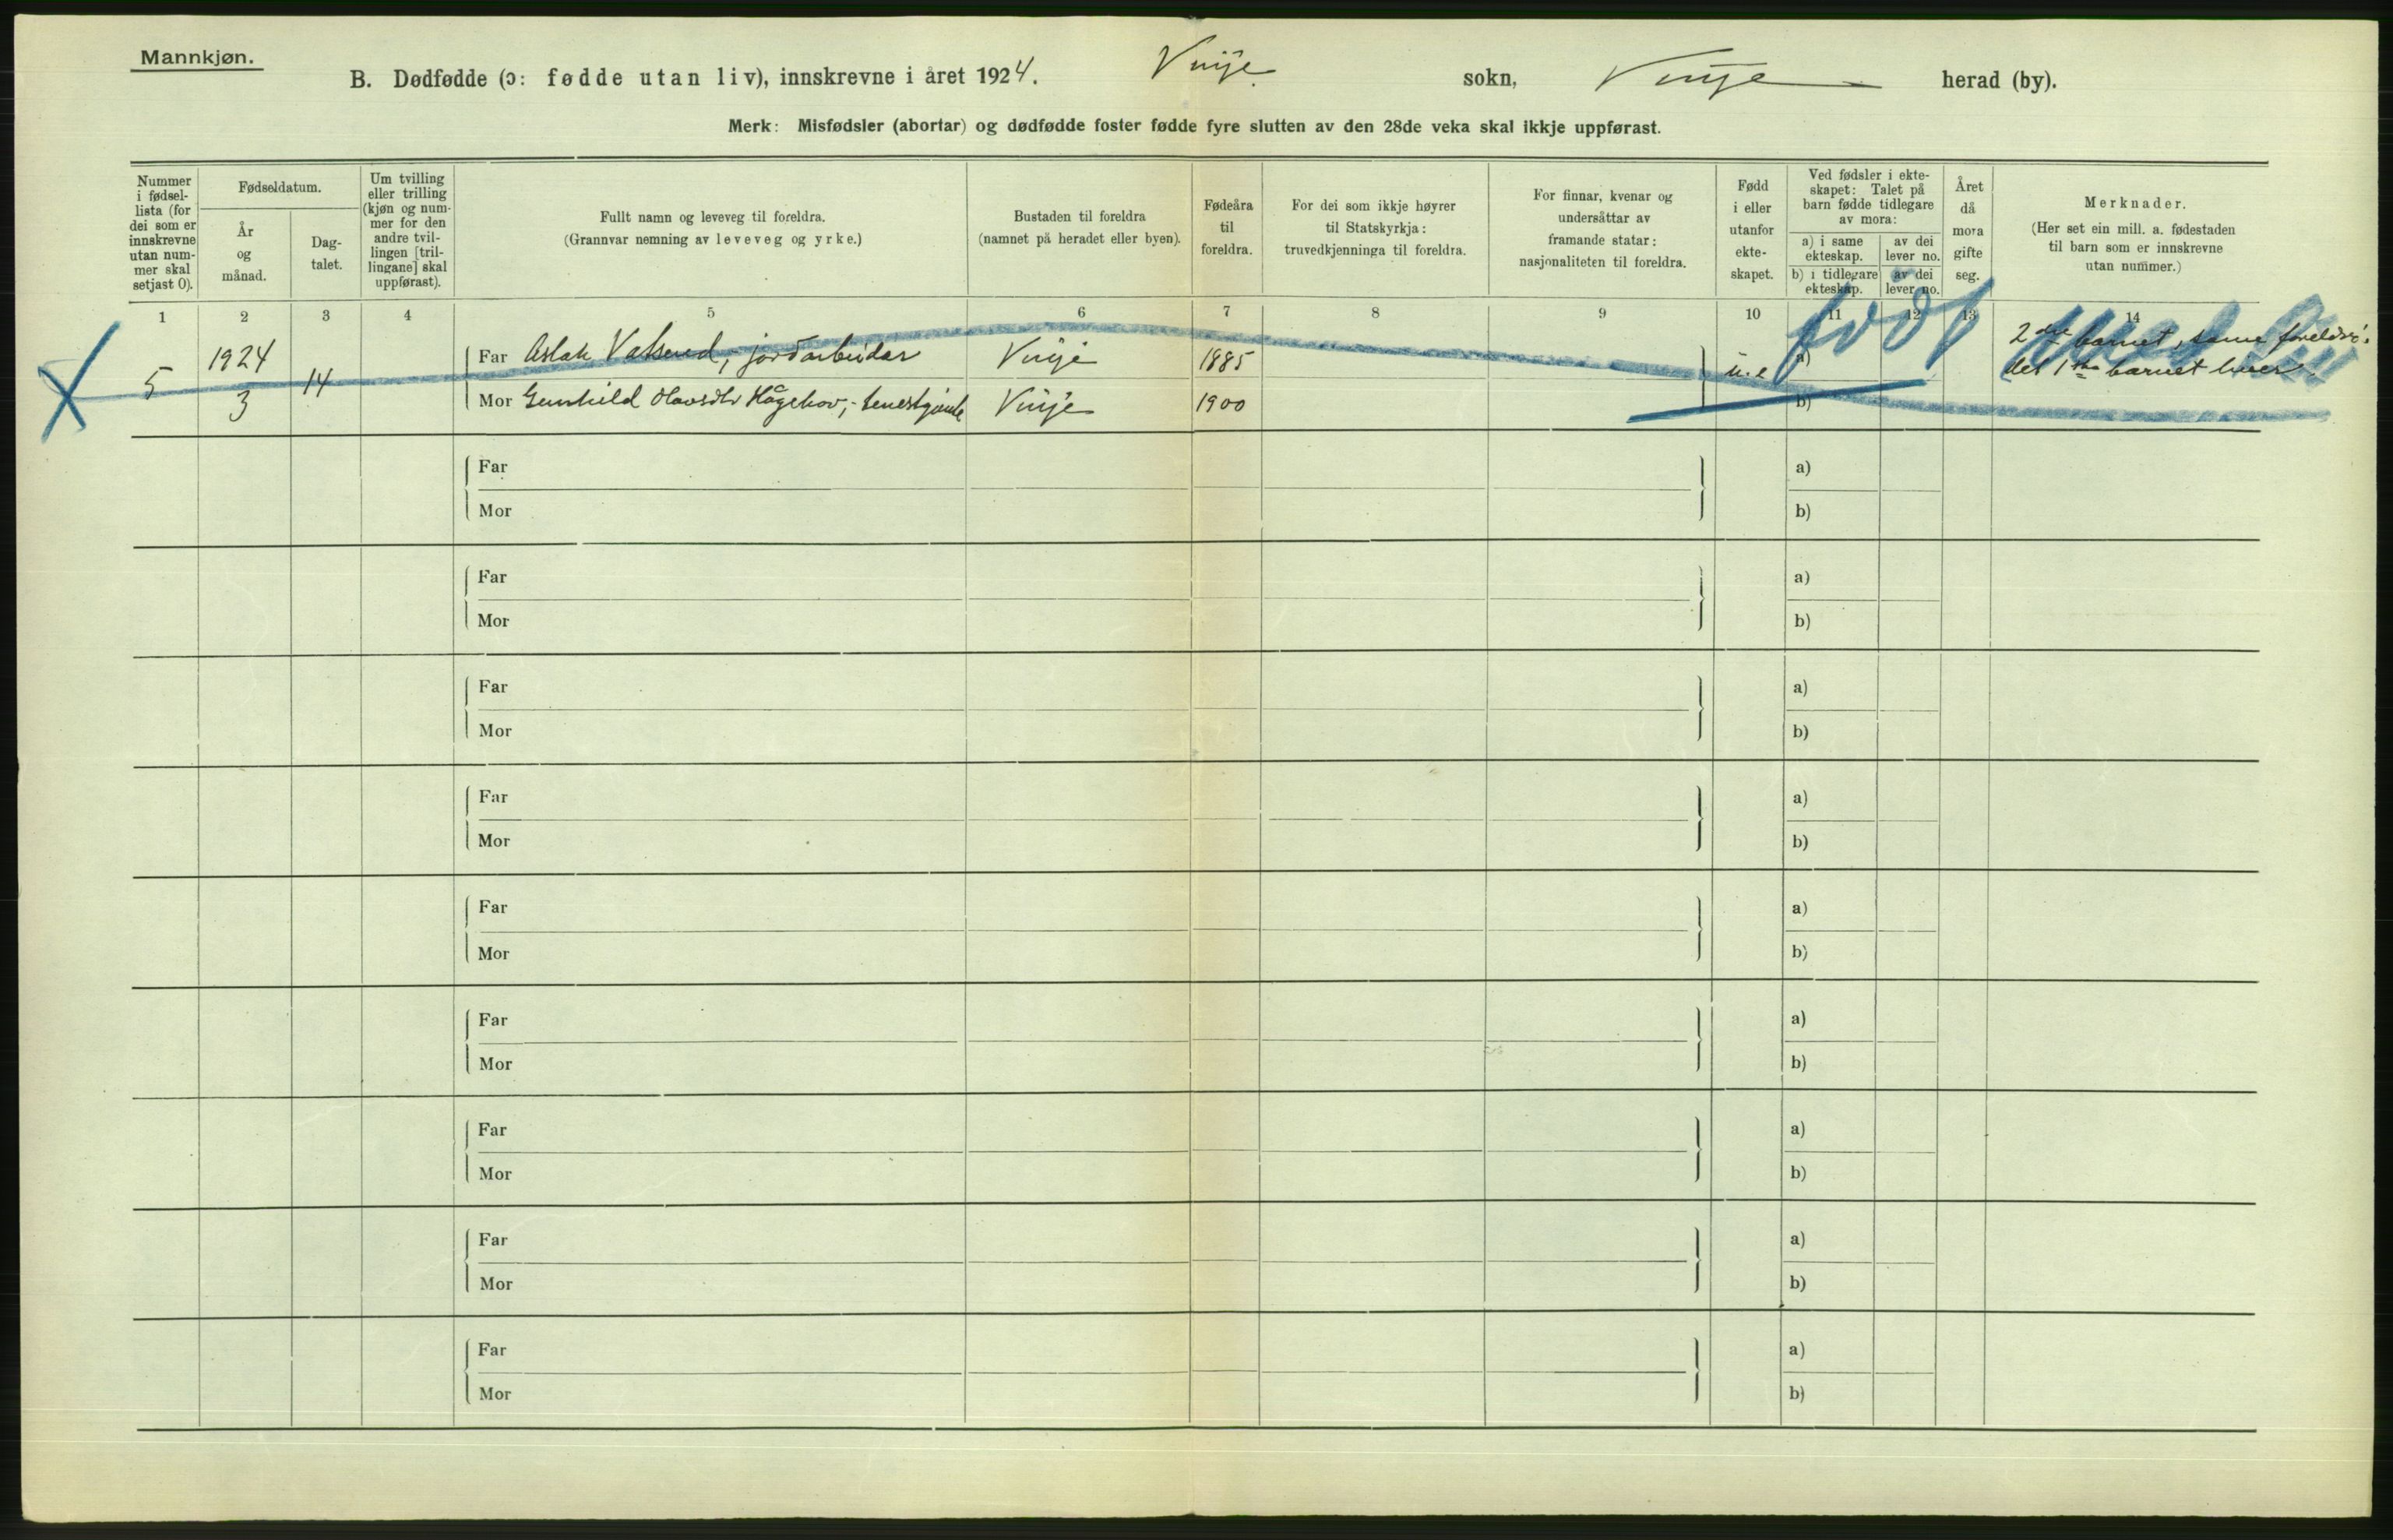 Mannkjøn.
B. Dødfødde (ɔ: fødde utan liv), innskrevne i året 1924. Vinje sokn, Vinje herad (by).
Merk: Misfødsler (abortar) og dødfødde foster fødde fyre slutten av den 28de veka skal ikkje uppførast.
Nummer
i fødsel-
lista (for
dei som er
innskrevne
utan num-
mer skal
setjast 0).
Fødseldatum.
År
og
månad.
Dag-
talet.
Um tvilling
eller trilling
(kjøn og num-
mer for den
andre tvil-
lingen [tril-
lingane] skal
uppførast).
Fullt namn og leveveg til foreldra.
(Grannvar nemning av leveveg og yrke.)
Bustaden til foreldra
(namnet på heradet eller byen).
Fødeåra
til
foreldra.
For dei som ikkje høyrer
til Statskyrkja:
truvedkjenninga til foreldra.
For finnar, kvenar og
undersåttar av
framande statar:
nasjonaliteten til foreldra.
Fødd
i eller
utanfor
ekte-
skapet.
Ved fødsler i ekte-
skapet: Talet på
barn fødde tidlegare
av mora:
a) i same
ekteskap.
av dei
lever no.
b) i tidlegare
ekteskap.
av dei
lever no.
Året
då
mora
gifte
seg.
Merknader.
(Her set ein mill. a. fødestaden
til barn som er innskrevne
utan nummer.)
1 2 3 4 5 6 7 8 9 10 11 12 13 14
født
5 1924 14 Far Aslak Vatsend, jordarbeidar Vinje 1885 u.e a) 2dre barnet, same foreldre:
3 Mor Gunhild Olavsdtr Hågehov, tenestgjente Vinje 1900 b) det 1ste barnet lever.
Far a)
Mor b)
Far a)
Mor b)
Far a)
Mor b)
Far a)
Mor b)
Far a)
Mor b)
Far a)
Mor b)
Far a)
Mor b)
Far a)
Mor b)
Far a)
Mor b)